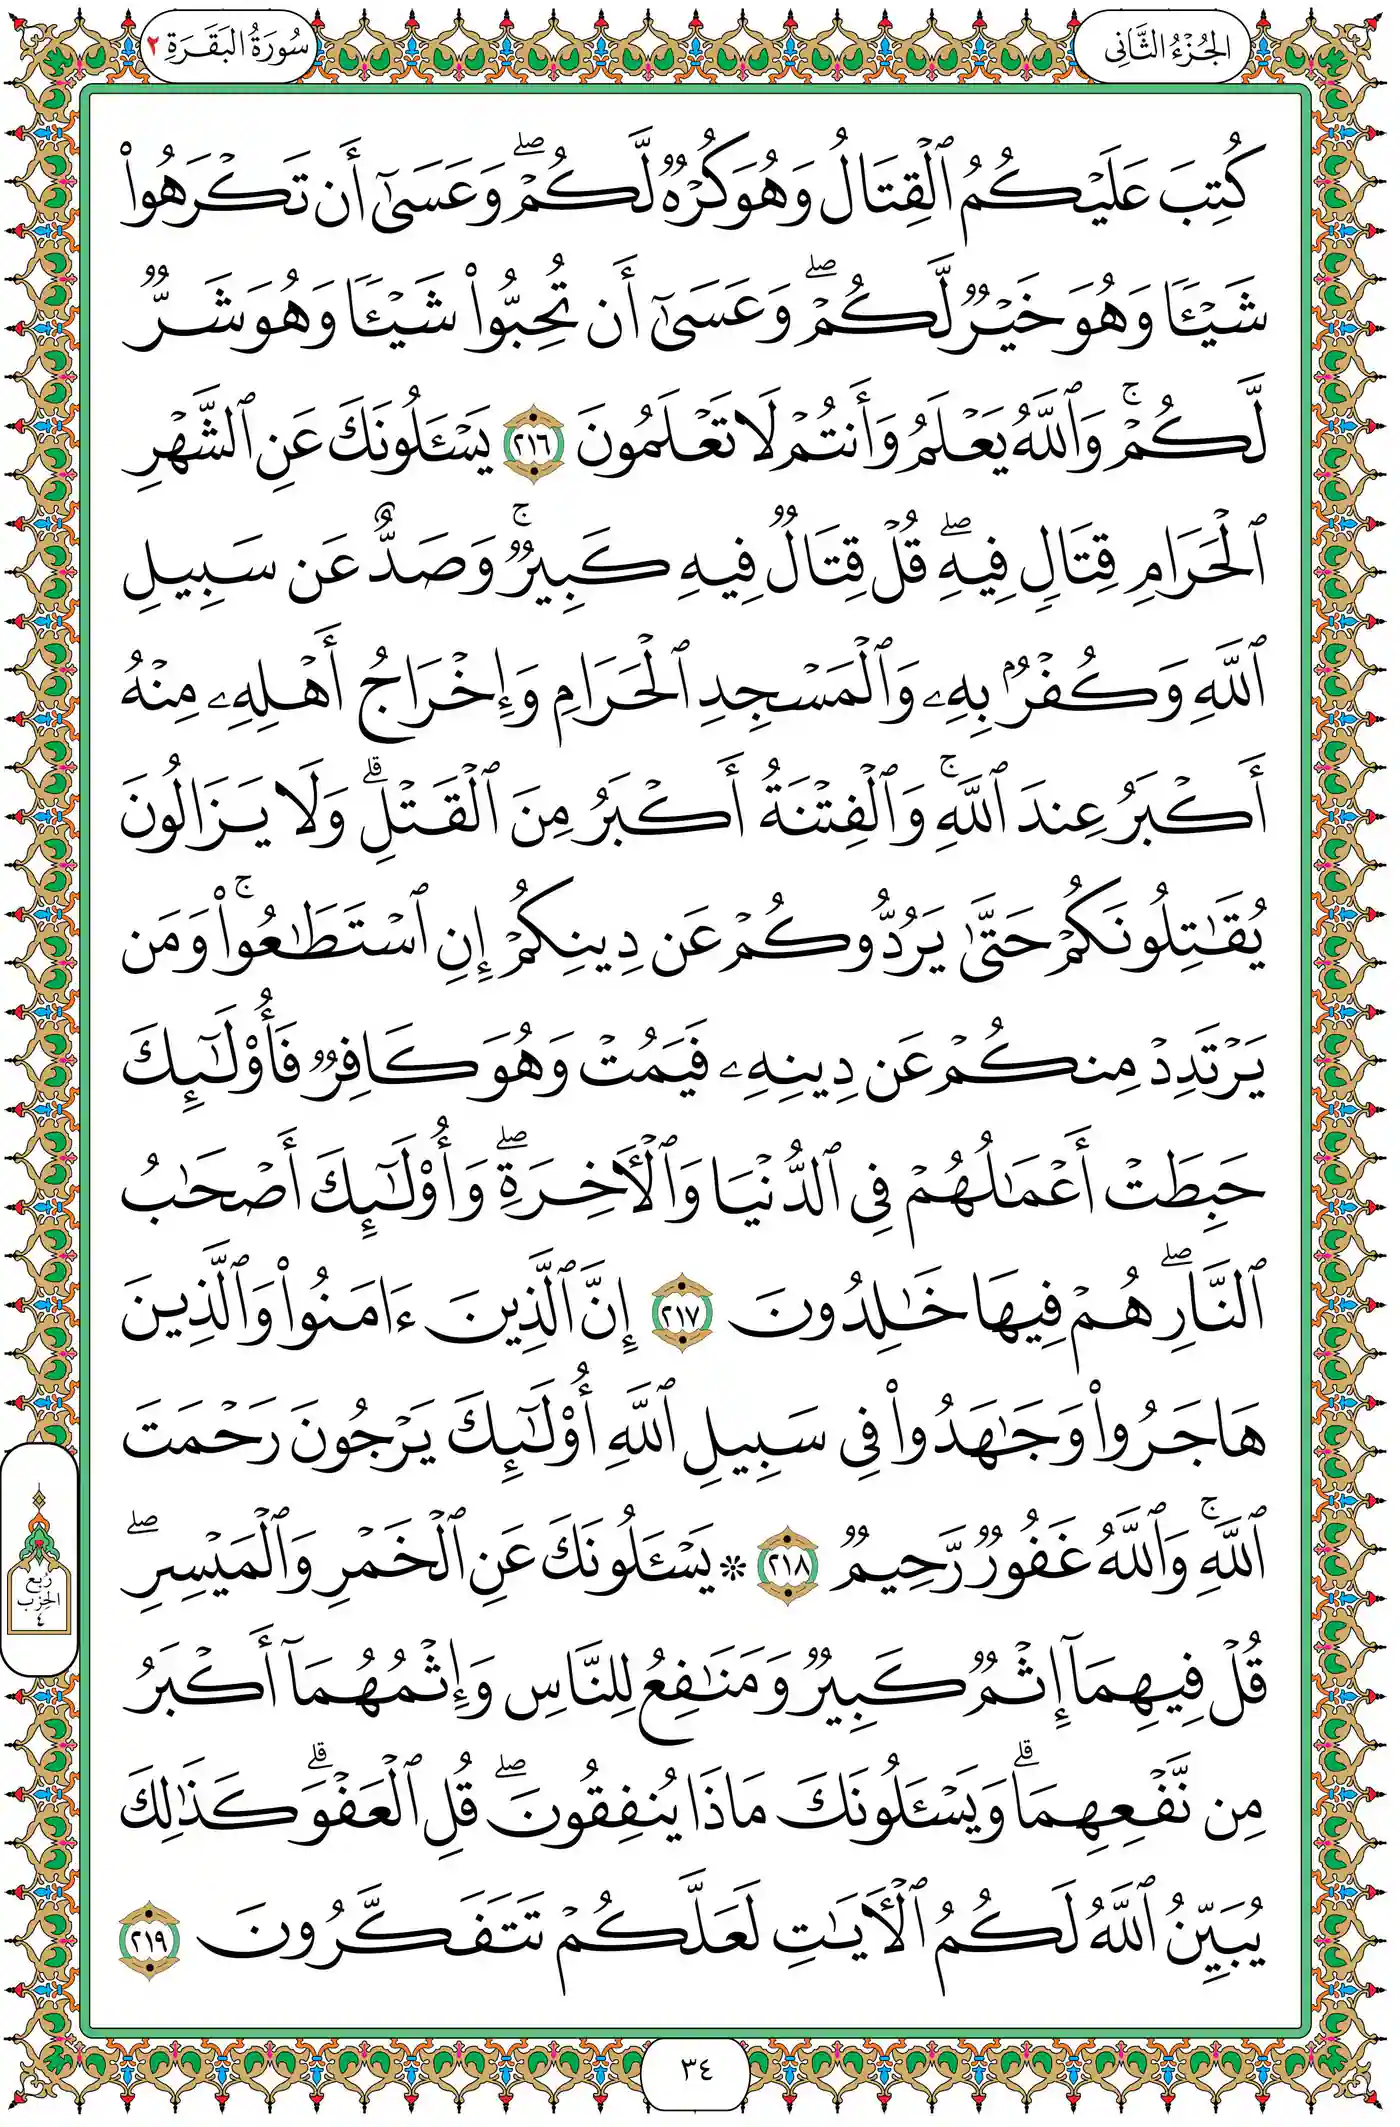 الجُزْءُ الثَّانِي
سُورَةُ البَقَرَةِ ٢
كُتِبَ عَلَيْكُمُ ٱلْقِتَالُ وَهُوَ كُرْهٌ لَّكُمْ ۖ وَعَسَىٰٓ أَن تَكْرَهُوا۟
شَيْـًٔا وَهُوَ خَيْرٌ لَّكُمْ ۖ وَعَسَىٰٓ أَن تُحِبُّوا۟ شَيْـًٔا وَهُوَ شَرٌّ
لَّكُمْ ۚ وَٱللَّهُ يَعْلَمُ وَأَنتُمْ لَا تَعْلَمُونَ ٢١٦ يَسْـَٔلُونَكَ عَنِ ٱلشَّهْرِ
ٱلْحَرَامِ قِتَالٍ فِيهِ ۖ قُلْ قِتَالٌ فِيهِ كَبِيرٌ ۚ وَصَدٌّ عَن سَبِيلِ
ٱللَّهِ وَكُفْرٌۢ بِهِۦ وَٱلْمَسْجِدِ ٱلْحَرَامِ وَإِخْرَاجُ أَهْلِهِۦ مِنْهُ
أَكْبَرُ عِندَ ٱللَّهِ ۚ وَٱلْفِتْنَةُ أَكْبَرُ مِنَ ٱلْقَتْلِ ۗ وَلَا يَزَالُونَ
يُقَـٰتِلُونَكُمْ حَتَّىٰ يَرُدُّوكُمْ عَن دِينِكُمْ إِنِ ٱسْتَطَـٰعُوا۟ ۚ وَمَن
يَرْتَدِدْ مِنكُمْ عَن دِينِهِۦ فَيَمُتْ وَهُوَ كَافِرٌ فَأُو۟لَـٰٓئِكَ
حَبِطَتْ أَعْمَـٰلُهُمْ فِى ٱلدُّنْيَا وَٱلْـَٔاخِرَةِ ۖ وَأُو۟لَـٰٓئِكَ أَصْحَـٰبُ
ٱلنَّارِ ۖ هُمْ فِيهَا خَـٰلِدُونَ ٢١٧ إِنَّ ٱلَّذِينَ ءَامَنُوا۟ وَٱلَّذِينَ
هَاجَرُوا۟ وَجَـٰهَدُوا۟ فِى سَبِيلِ ٱللَّهِ أُو۟لَـٰٓئِكَ يَرْجُونَ رَحْمَتَ
ٱللَّهِ ۚ وَٱللَّهُ غَفُورٌ رَّحِيمٌ ٢١٨ * يَسْـَٔلُونَكَ عَنِ ٱلْخَمْرِ وَٱلْمَيْسِرِ ۖ
رُبع
الحِزب
٤
قُلْ فِيهِمَآ إِثْمٌ كَبِيرٌ وَمَنَـٰفِعُ لِلنَّاسِ وَإِثْمُهُمَآ أَكْبَرُ
مِن نَّفْعِهِمَا ۗ وَيَسْـَٔلُونَكَ مَاذَا يُنفِقُونَ ۖ قُلِ ٱلْعَفْوَ ۗ كَذَٰلِكَ
يُبَيِّنُ ٱللَّهُ لَكُمُ ٱلْـَٔايَـٰتِ لَعَلَّكُمْ تَتَفَكَّرُونَ ٢١٩
٣٤